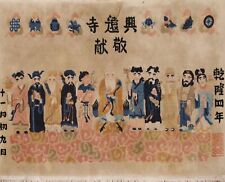 寺遠興
獻敬
乾隆四年
十一月初九日